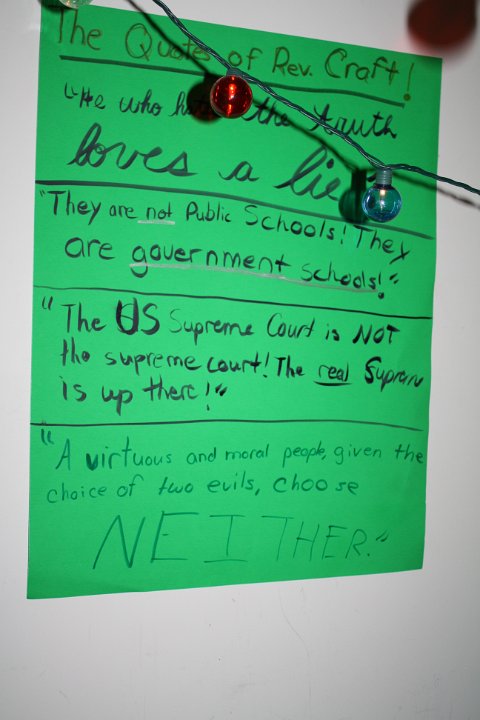 The Quotes of Rev. Craft!
"He who the truth
loves a lie
"They are not Public Schools! They
are government schools!"
"The US Supreme Court is NOT
the supreme court! The real Suprem
is up there!"
"A virtuous and moral people, given the
choice of two evils, choose
NEITHER."